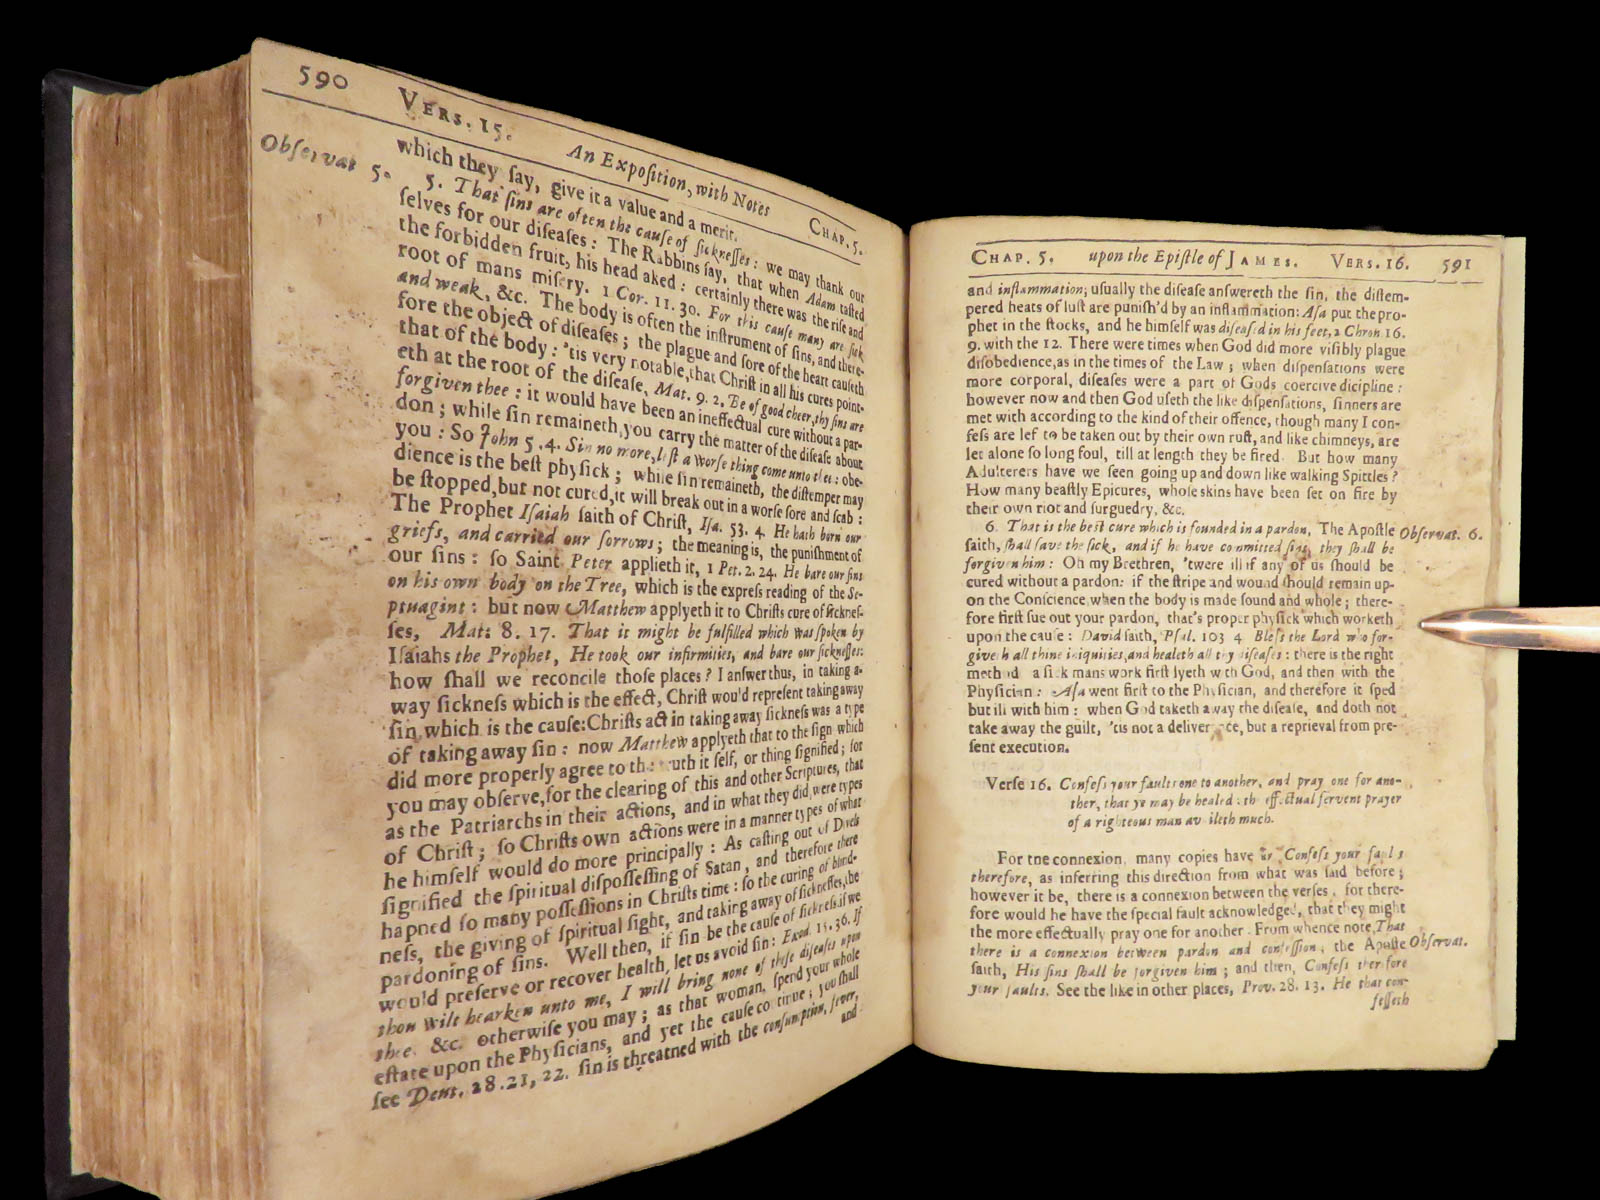 590 Vers. 15. An Expoſition, with Notes Chap. 5.
which they ſay, give it a value and a merit.
Obſervat 5. 5. That ſins are often the cauſe of ſickneſſes: we may thank our
ſelves for our diſeaſes: The Rabbins ſay, that when Adam taſted
the forbidden fruit, his head aked: certainly there was the riſe and
root of mans miſery. 1 Cor. 11. 30. For this cauſe many are ſick
and weak, &c. The body is often the inſtrument of ſins, and there-
fore the object of diſeaſes; the plague and ſore of the heart cauſeth
that of the body: 'tis very notable, that Chriſt in all his cures point-
eth at the root of the diſeaſe, Mat. 9. 2. Be of good cheer, thy ſins are
forgiven thee: it would have been an ineffectual cure without a par-
don; while ſin remaineth, you carry the matter of the diſeaſe about
you: So John 5.4. Sin no more, leſt a worſe thing come unto thee: obe-
dience is the beſt phyſick; while ſin remaineth, the diſtemper may
be ſtopped, but not cured, it will break out in a worſe ſore and ſcab:
The Prophet Iſaiah ſaith of Chriſt, Iſa. 53. 4. He hath born our
griefs, and carried our ſorrows; the meaning is, the puniſhment of
our ſins: ſo Saint Peter applieth it, 1 Pet. 2. 24. He bare our ſins
on his own body on the Tree, which is the expreſs reading of the Se-
ptuagint: but now Matthew applyeth it to Chriſts cure of ſickneſ-
ſes, Mat: 8. 17. That it might be fulfilled which was ſpoken by
Iſaiahs the Prophet, He took our infirmities, and bare our ſickneſſes:
how ſhall we reconcile thoſe places? I anſwer thus, in taking a-
way ſickneſs which is the effect, Chriſt wou'd repreſent taking away
ſin which is the cauſe: Chriſts act in taking away ſickneſs was a type
of taking away ſin: now Matthew applyeth that to the ſign which
did more properly agree to the truth it ſelf, or thing ſignified; for
you may obſerve, for the clearing of this and other Scriptures, that
as the Patriarchs in their actions, and in what they did, were types
of Chriſt; ſo Chriſts own actions were in a manner types of what
he himſelf would do more principally: As caſting out of Divels
ſignified the ſpiritual diſpoſſeſſing of Satan, and therefore there
hapned ſo many poſſeſſions in Chriſts time: ſo the curing of blind-
neſs, the giving of ſpiritual ſight, and taking away of ſickneſſes, the
pardoning of ſins. Well then, if ſin be the cauſe of ſickneſs if we
would preſerve or recover health, let us avoid ſin: Exod. 15. 36. If
thou wilt hearken unto me, I will bring none of theſe diſeaſes upon
thee. &c. otherwiſe you may; as that woman, ſpend your whole
eſtate upon the Phyſicians, and yet the cauſe continue; you ſhall
ſee Deut. 28.21, 22. ſin is threatned with the conſumption, fever,
and
Chap. 5. upon the Epiſtle of James. Vers. 16. 591
and inflammation; uſually the diſeaſe anſwereth the ſin, the diſtem-
pered heats of luſt are puniſh'd by an inflammation: Aſa put the pro-
phet in the ſtocks, and he himſelf was diſeaſed in his feet, 2 Chron 16.
9. with the 12. There were times when God did more viſibly plague
diſobedience, as in the times of the Law; when diſpenſations were
more corporal, diſeaſes were a part of Gods coercive dicipline:
however now and then God uſeth the like diſpenſations, ſinners are
met with according to the kind of their offence, though many I con-
feſs are lef to be taken out by their own ruſt, and like chimneys, are
let alone ſo long foul, till at length they be fired. But how many
Adulterers have we ſeen going up and down like walking Spittles?
How many beaſtly Epicures, whoſe skins have been ſet on fire by
their own riot and ſurguedry, &c.
6. That is the beſt cure which is founded in a pardon, The Apoſtle Obſervat. 6.
ſaith, ſhall ſave the ſick, and if he have committed ſins, they ſhall be
forgiven him: Oh my Brethren, 'twere ill if any of us ſhould be
cured without a pardon: if the ſtripe and wound ſhould remain up-
on the Conſcience, when the body is made ſound and whole; there-
fore firſt ſue out your pardon, that's proper phyſick which worketh
upon the cauſe: David ſaith, Pſal. 103 4 Bleſs the Lord who for-
giveth all thine iniquities, and healeth all thy diſeaſes: there is the right
method a ſick mans work firſt lyeth with God, and then with the
Phyſician: Aſa went firſt to the Phyſician, and therefore it ſped
but ill with him: when God taketh away the diſeaſe, and doth not
take away the guilt, 'tis not a deliverance, but a reprieval from pre-
ſent execution.
Verſe 16. Confeſs your faults one to another, and pray one for ano-
ther, that ye may be healed: the effectual fervent prayer
of a righteous man availeth much.
For the connexion, many copies have Confeſs your faults
therefore, as inferring this direction from what was ſaid before;
however it be, there is a connexion between the verſes, for there-
fore would he have the ſpecial fault acknowledged, that they might
the more effectually pray one for another. From whence note, That
there is a connexion between pardon and confeſſion; the Apoſtle Obſervat.
ſaith, His ſins ſhall be forgiven him; and then, Confeſs therfore
your faults. See the like in other places, Prov. 28. 13. He that con-
feſſeth